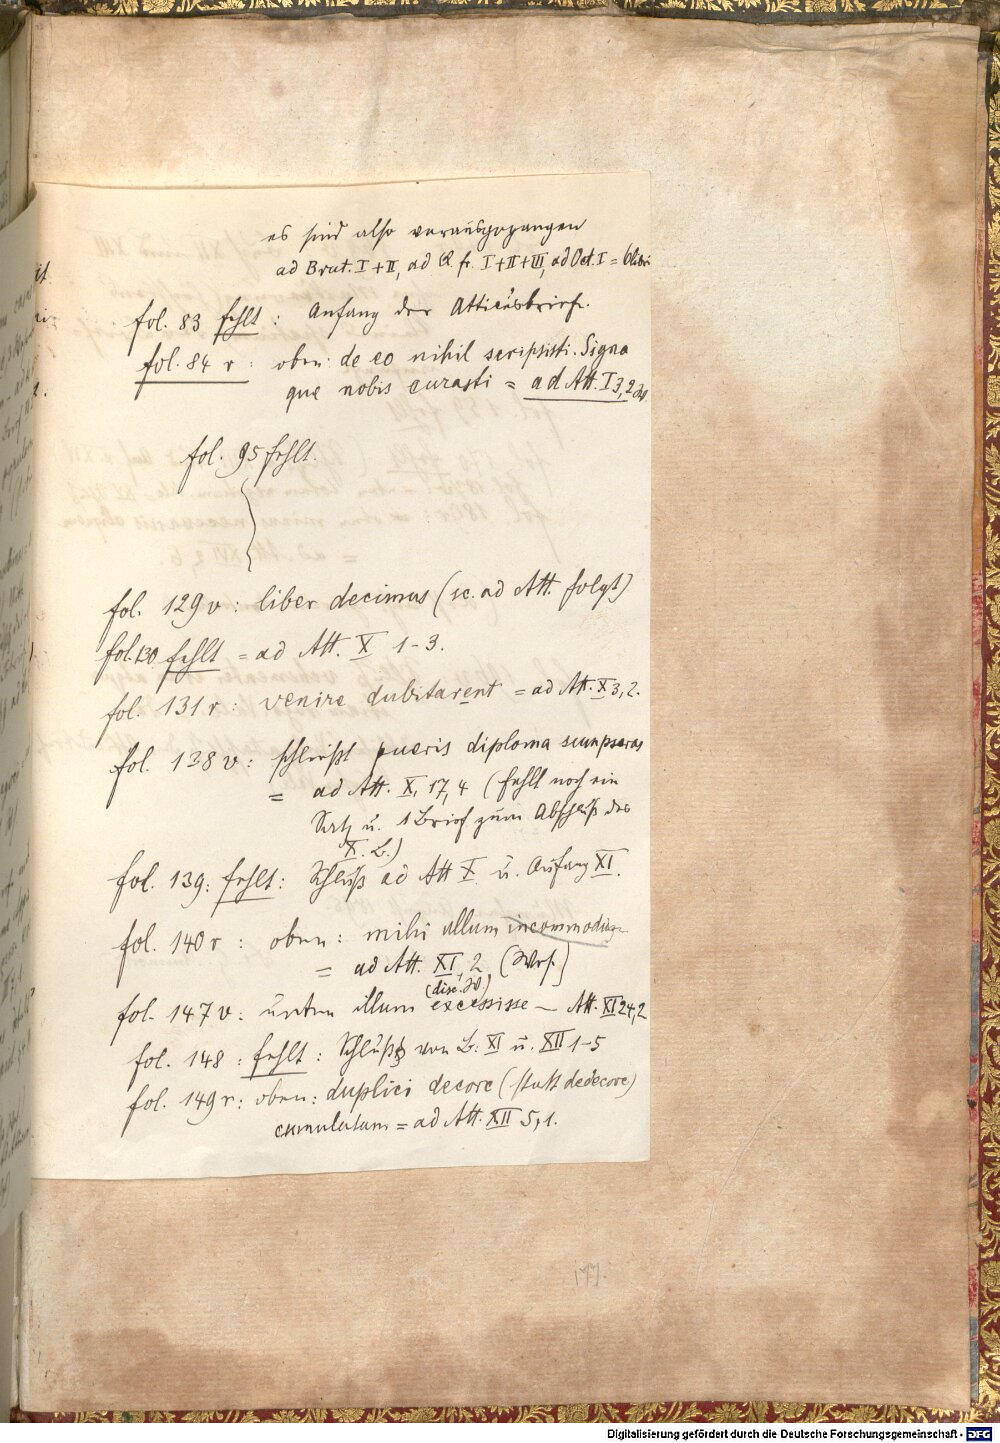 es sind also vorausgegangen
ad Brut. I + II, ad Q. fr. I + II + III, ad Oct. I = 6 libri
fol. 83 fehlt : Anfang der Atticusbriefe.
fol. 84 r : oben: de eo nihil scripsisti. Signa
que nobis curasti = ad Att. I 3, 2
fol. 95 fehlt.
fol. 129 v : liber decimus (sc. ad Att. folgt)
fol. 130 fehlt = ad Att. X 1-3.
fol. 131 r : venire dubitarent = ad Att. X 3, 2.
fol. 138 v : schließt pueris diploma sumpseras
= ad Att. X, 17, 4 (fehlt noch ein
Satz u. 1 Brief zum Abschluß des
X. B.)
fol. 139 : fehlt : Schluß ad Att X u. Anfang XI.
fol. 140 r : oben : mihi ullum incommodum
= ad Att. XI, 2
fol. 147 v : unten illum excessisse — Att. XI 24, 2
fol. 148 : fehlt : Schluß von B. XI u. XII 1-5
fol. 149 r : oben : duplici decore (statt dedecore)
cumulatam = ad Att. XII 5, 1.
177.
Digitalisierung gefördert durch die Deutsche Forschungsgemeinschaft - DFG